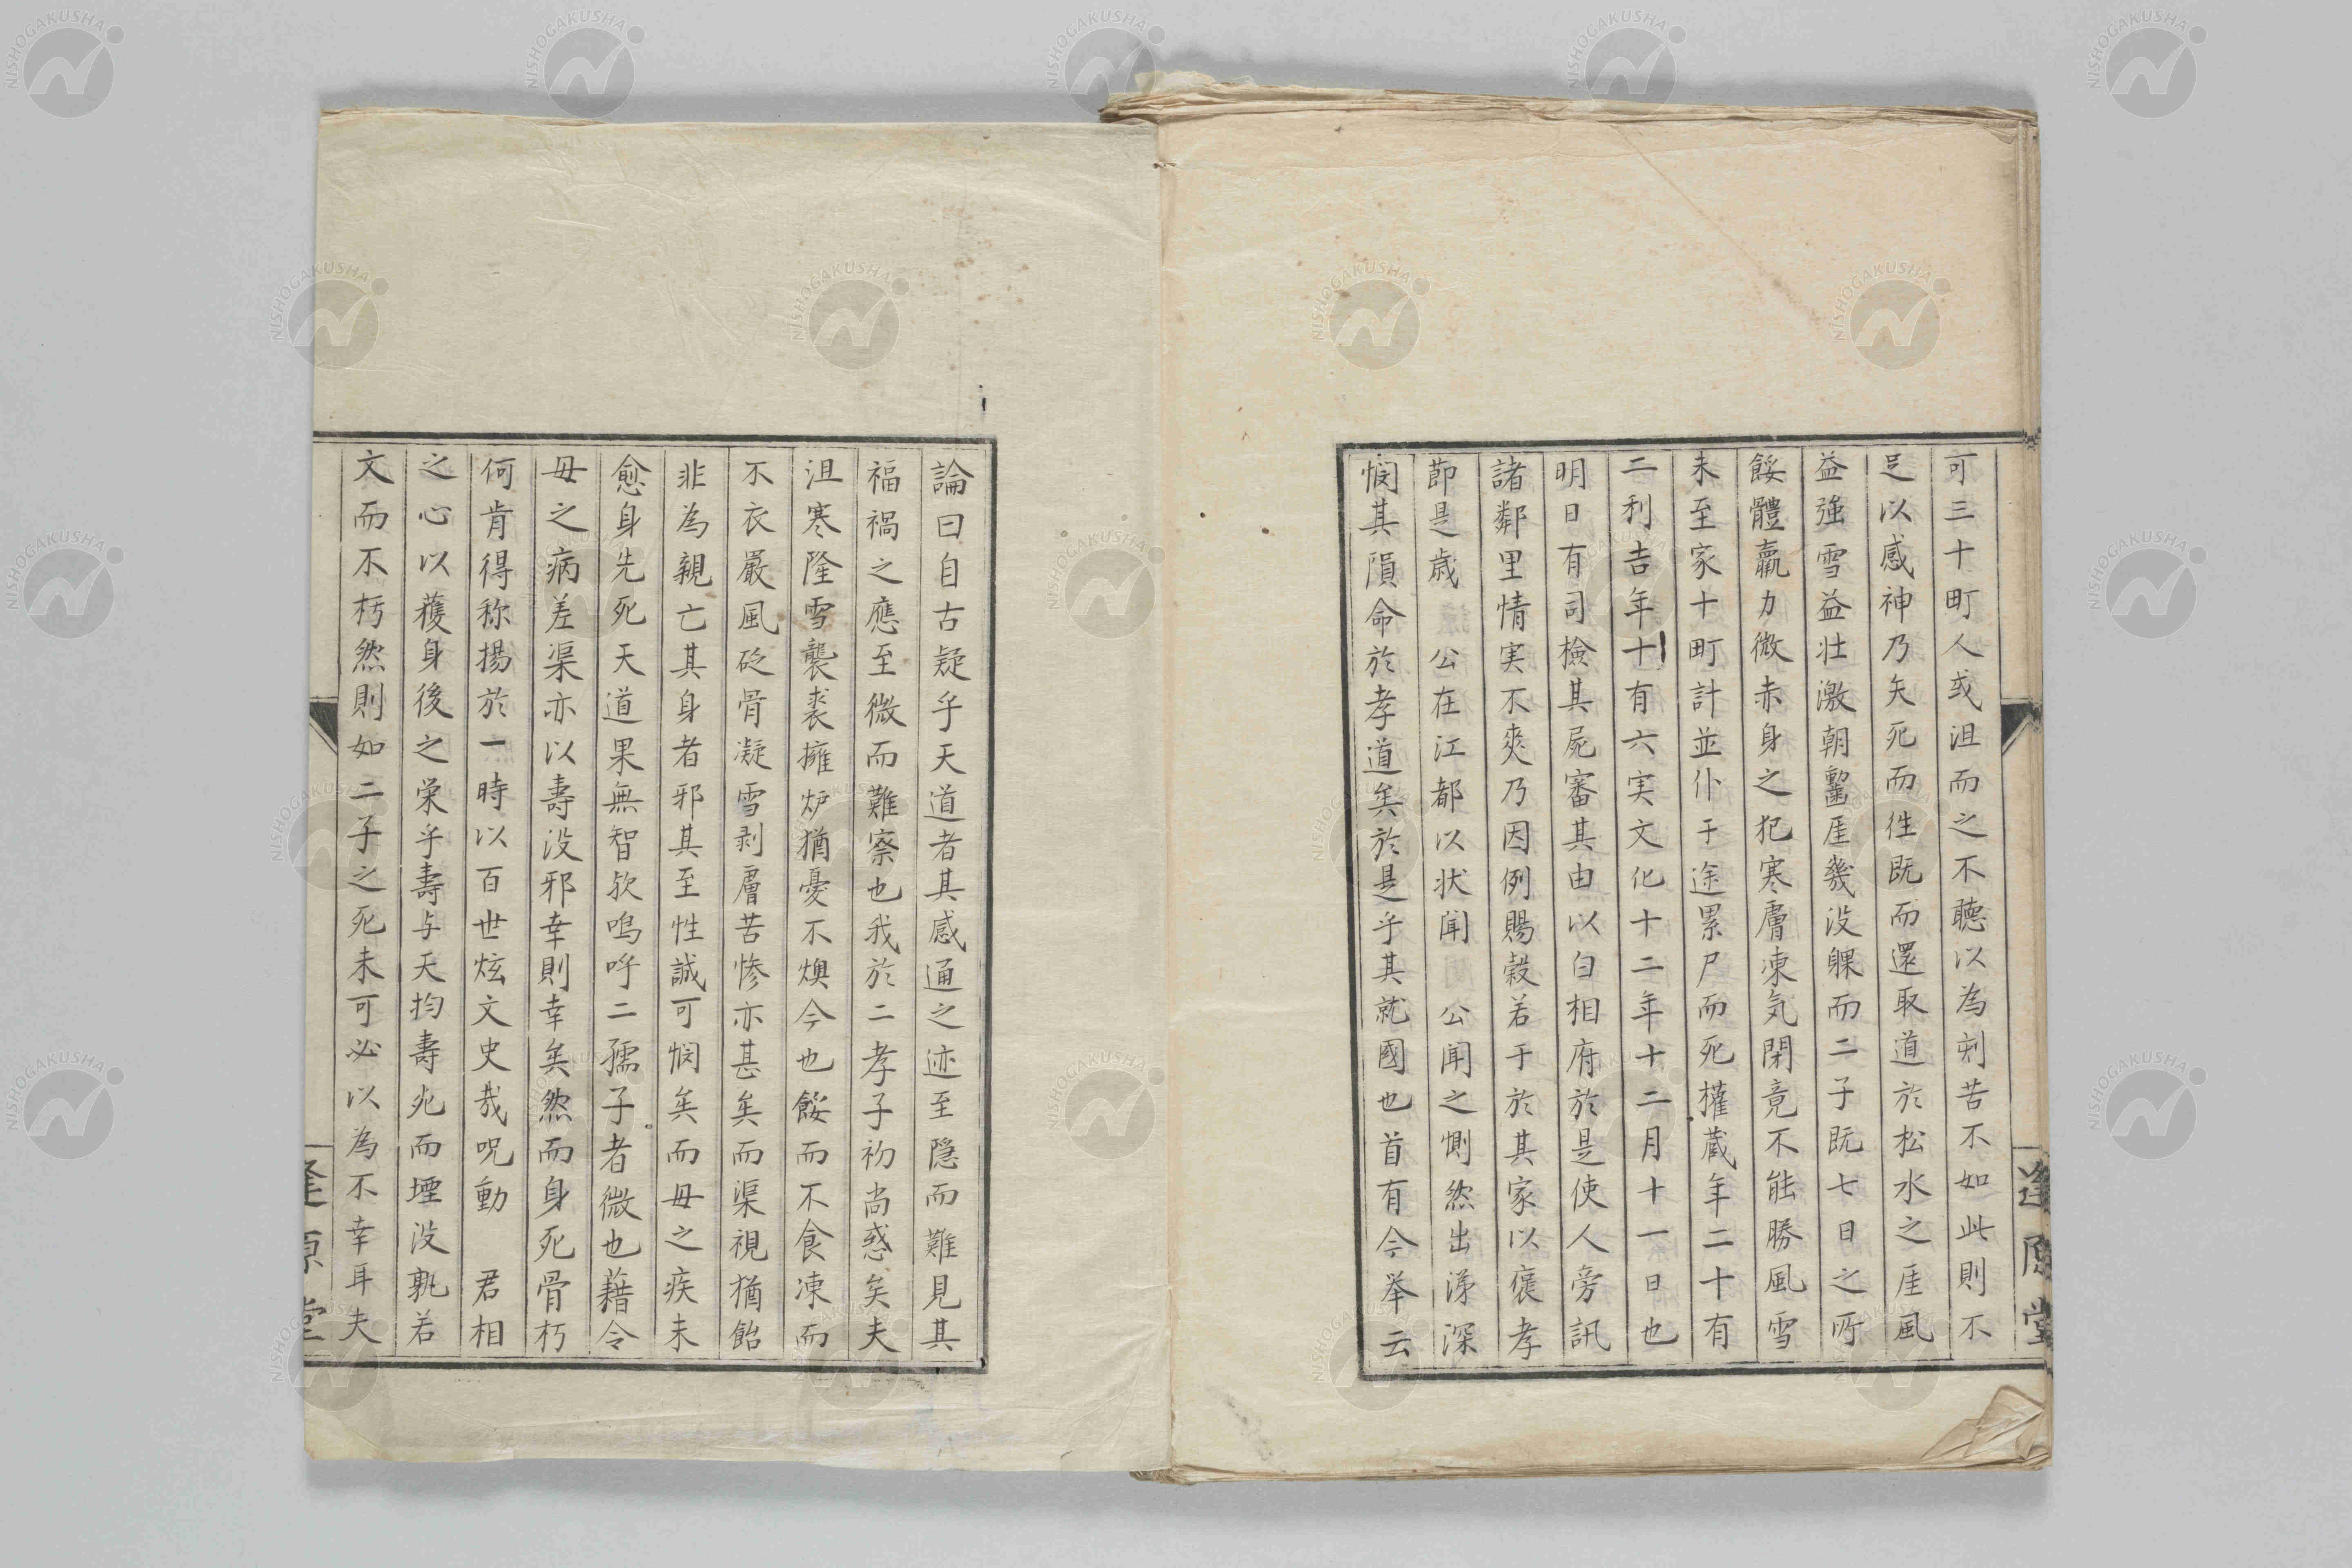 可三十町人或沮而之不聴以為剋苦不如此則不
足以感神乃矢死而徃既而還取道於松水之厓風
益強雪益壮激朝鑿厓幾没躶而二子既七日之所
餒體羸力微赤身之犯寒膚凍気閉竟不能勝風雪
未至家十町計並仆于途累尸而死權蔵年二十有
二利吉年十有六実文化十二年十二月十一日也
明日有司検其屍審其由以白相府於是使人旁訊
諸鄰里情実不爽乃因例賜穀若于於其家以褒孝
節是歳 公在江都以状聞 公聞之惻然出涕深
憫其隕命於孝道矣於是乎其就國也首有今挙云
逢原堂
論曰自古疑乎天道者其感通之迹至隠而難見其
福禍之應至微而難察也我於二孝子初尚惑矣夫
沮寒隆雪襲裘擁炉猶憂不燠今也餒而不食凍而
不衣嚴風砭骨凝雪剥膚苦惨亦甚矣而渠視猶飴
非為親亡其身者邪其至性誠可憫矣而毋之疾未
愈身先死天道果無智欤嗚呼二孺子者微也藉令
毋之病差渠亦以壽没邪幸則幸矣然而身死骨朽
何肯得称揚於一時以百世炫文史哉呪動 君相
之心以獲身後之栄乎壽与天均壽死而堙没孰若
文而不朽然則如二子之死未可必以為不幸耳夫
逢原堂